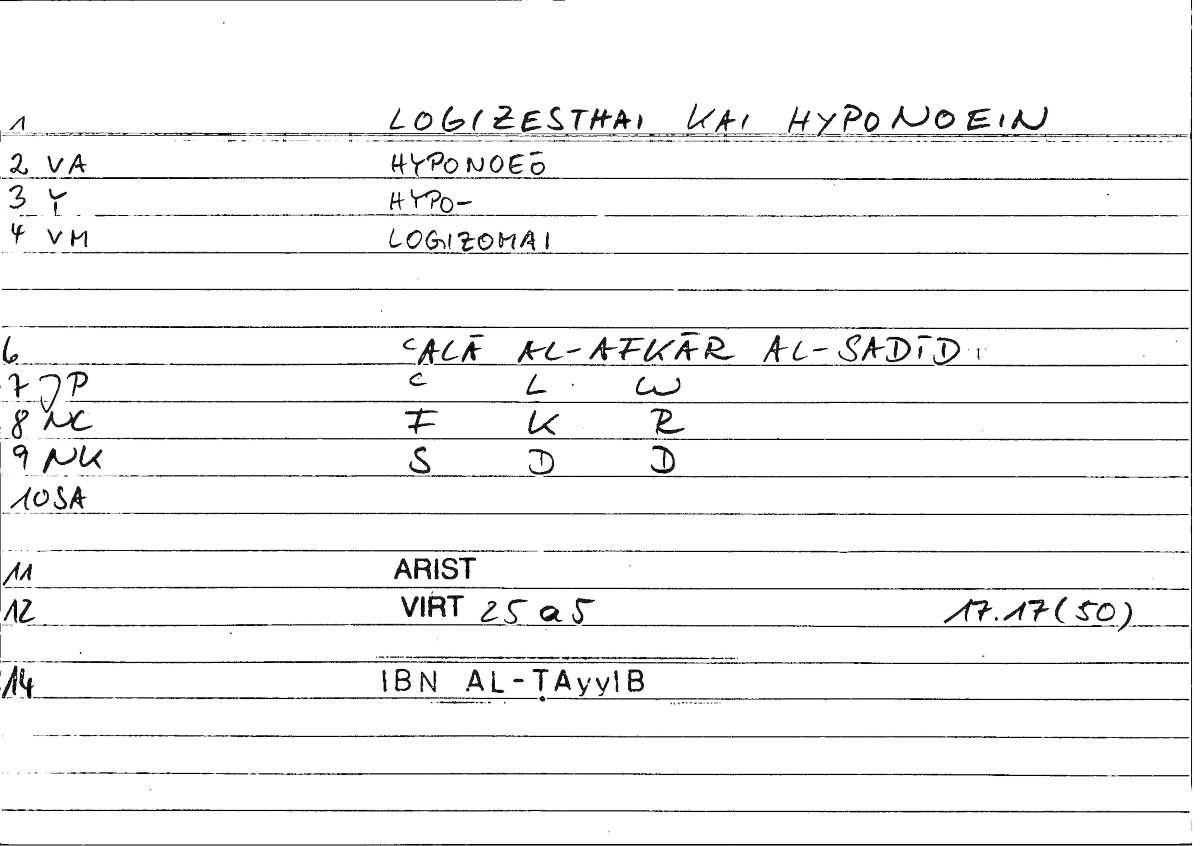 1 LOGIZESTHAI KAI HYPONOEIN
2 VA HYPONOEŌ
3 Y HYPO-
4 VM LOGIZOMAI
6 ᶜALĀ AL-AFKĀR AL-SADĪD
7 P ᶜ L W
8 NC F K R
9 NK S D D
10 SA
11 ARIST
12 VIRT 25 a 5 17.17(50)
14 IBN AL-ṬAyyIB